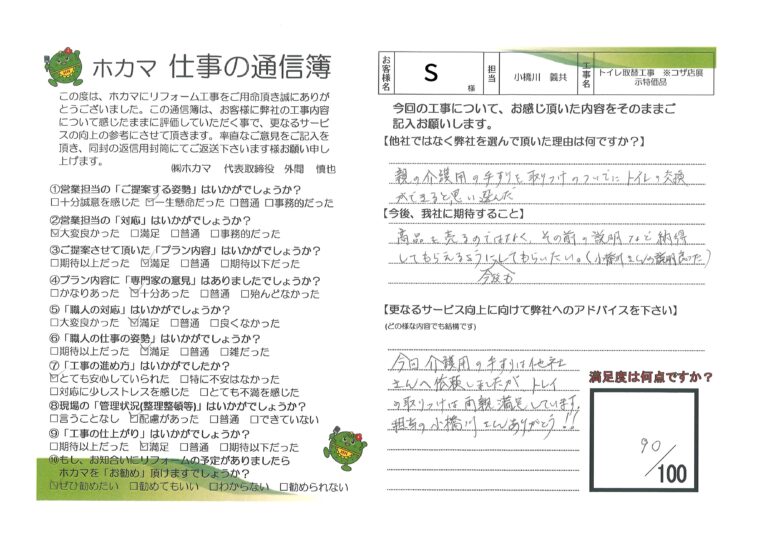 ホカマ 仕事の通信簿
この度は、ホカマにリフォーム工事をご用命頂き誠にありが
とうございました。この通信簿は、お客様に弊社の工事内容
について感じたままに評価していただく事で、更なるサービ
スの向上の参考にさせて頂きます。率直なご意見をご記入を
頂き、同封の返信用封筒にてご返送下さいます様お願い申し
上げます。
㈱ホカマ 代表取締役 外間 慎也
①営業担当の「ご提案する姿勢」はいかがでしょうか?
□十分誠意を感じた ☑一生懸命だった □普通 □事務的だった
②営業担当の「対応」はいかがでしょうか?
☑大変良かった □満足 □普通 □事務的だった
③ご提案させて頂いた「プラン内容」はいかがでしょうか?
□期待以上だった ☑満足 □普通 □期待以下だった
④プラン内容に「専門家の意見」はありましたでしょうか?
□かなりあった ☑十分あった □普通 □殆んどなかった
⑤「職人の対応」はいかがでしょうか?
□大変良かった ☑満足 □普通 □良くなかった
⑥「職人の仕事の姿勢」はいかがでしょうか?
□期待以上だった ☑満足 □普通 □雑だった
⑦「工事の進め方」はいかがでしたか?
☑とても安心していられた □特に不安はなかった
□対応に少しストレスを感じた □とても不満を感じた
⑧現場の「管理状況(整理整頓等)」はいかがでしょうか?
□言うことなし ☑配慮があった □普通 □できていない
⑨「工事の仕上がり」はいかがでしょうか?
□期待以上だった ☑満足 □普通 □期待以下だった
⑩もし、お知合いにリフォームの予定がありましたら
ホカマを「お勧め」頂けますでしょうか?
☑ぜひ勧めたい □勧めてもいい □わからない □勧められない
お客様名 S 様 担当 小橋川 義共 工事名 トイレ取替工事 ※コザ店展
示特価品
今回の工事について、お感じ頂いた内容をそのままご
記入お願いします。
【他社ではなく弊社を選んで頂いた理由は何ですか?】
親の介護用の手すりを取りつけのついでにトイレの交換
ができると思い選んだ
【今後、我社に期待すること】
商品を売るのではなく、その前の説明など納得
してもらえるようにしてもらいたい。(小橋川さんの説明良かった)
今後も
【更なるサービス向上に向けて弊社へのアドバイスを下さい】
(どの様な内容でも結構です)
今回介護用の手すりは他社
さんへ依頼しましたが トイレ
の取りつけは両親満足しています
担当の小橋川さんありがとう!!
満足度は何点ですか?
90/100